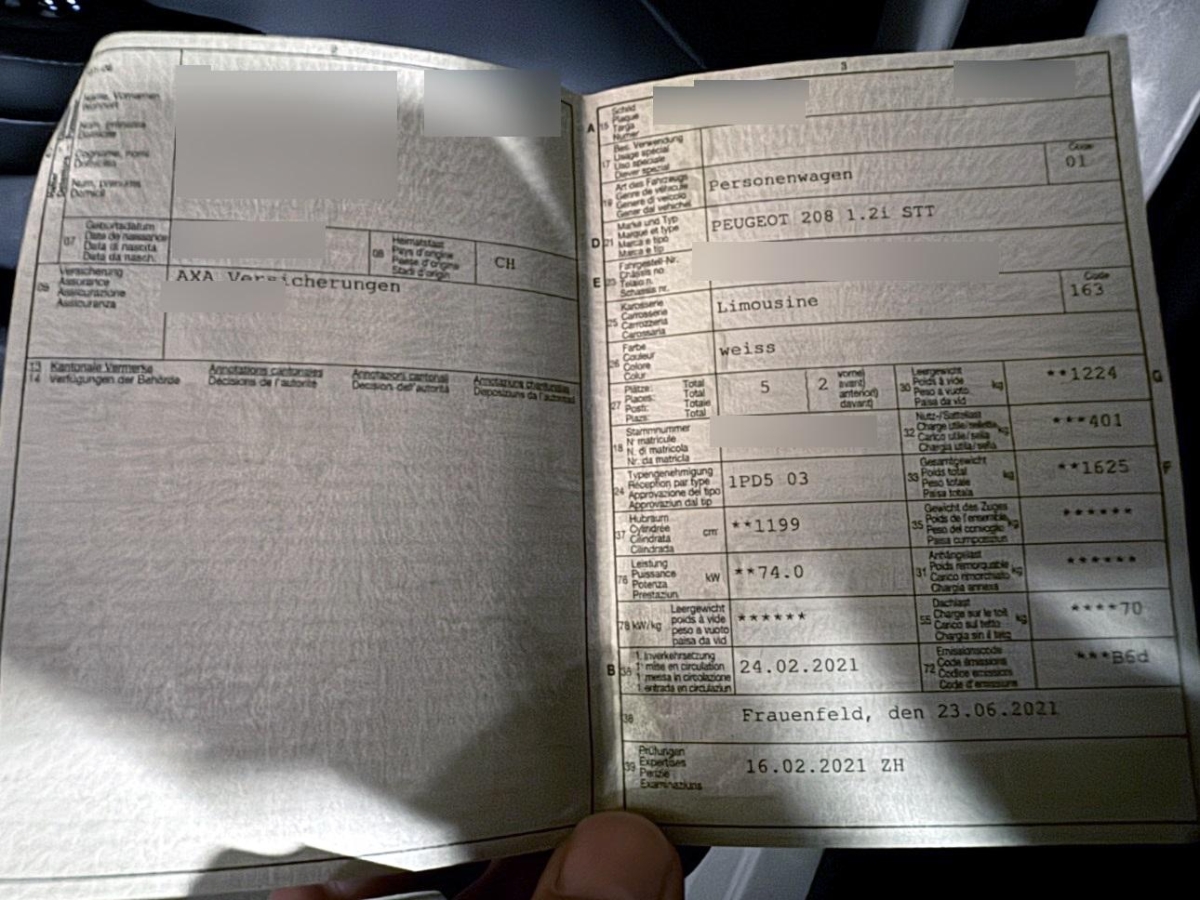 2
Name, Vornamen
Wohnort
Nom, prénoms
Domicile
Cognome, nomi
Domicilio
Num, prenums
Domicil
07 Geburtsdatum
Date de naissance
Data di nascita
Data da nasch.
08 Heimatstaat
Pays d'origine
Paese d'origine
Stadi d'origin
CH
09 Versicherung
Assurance
Assicurazione
Assicuranza
AXA Versicherungen
13 Kantonale Vermerke Annotations cantonales Annotazioni cantonali Annotaziuns chantunalas
14 Verfügungen der Behörde Décisions de l'autorité Decisioni dell'autorità Disposiziuns da l'autoritad
3
A 15 Schild
Plaque
Targa
Numer
17 Bes. Verwendung
Usage spécial
Uso speciale
Diever spezial
19 Art des Fahrzeugs
Genre de véhicule
Genere di veicolo
Gener dal vehichel
Personenwagen
Code
01
D 21 Marke und Typ
Marque et type
Marca e tipo
Marca e tip
PEUGEOT 208 1.2i STT
E 23 Fahrgestell-Nr.
Châssis no
Telaio n.
Schassis nr.
25 Karosserie
Carrosserie
Carrozzeria
Carossaria
Limousine
Code
163
26 Farbe
Couleur
Colore
Colur
weiss
27 Plätze: Total
Places: Total
Posti: Totale
Plazs: Total
5
2 vorne)
avant)
anteriori)
davant)
30 Leergewicht
Poids à vide
Peso a vuoto
Paisa da vid
kg
**1224 G
18 Stammnummer
N° matricule
N. di matricola
Nr. da matricla
32 Nutz-/Sattellast
Charge utile/sellette
Carico utile/sella
Chargia utila/sella
kg
***401
24 Typengenehmigung
Réception par type
Approvazione del tipo
Approvaziun dal tip
1PD5 03
33 Gesamtgewicht
Poids total
Peso totale
Paisa totala
kg
**1625 F
37 Hubraum
Cylindrée
Cilindrata
Cilindrada
cm³
**1199
35 Gewicht des Zuges
Poids de l'ensemble
Peso del convoglio
Paisa cumposiziun
kg
******
76 Leistung
Puissance
Potenza
Prestaziun
kW
**74.0
31 Anhängelast
Poids remorquable
Carico rimorchiato
Chargia annexa
kg
******
78 kW/kg Leergewicht
poids à vide
peso a vuoto
paisa da vid
******
55 Dachlast
Charge sur le toit
Carico sul tetto
Chargia sin il tetg
kg
****70
B 36 1. Inverkehrsetzung
1re mise en circulation
1a messa in circolazione
1. entrada en circulaziun
24.02.2021
72 Emissionscode
Code émissions
Codice emissioni
Code d'emissiuns
***B6d
38
Frauenfeld, den 23.06.2021
39 Prüfungen
Expertises
Perizie
Examinaziuns
16.02.2021 ZH